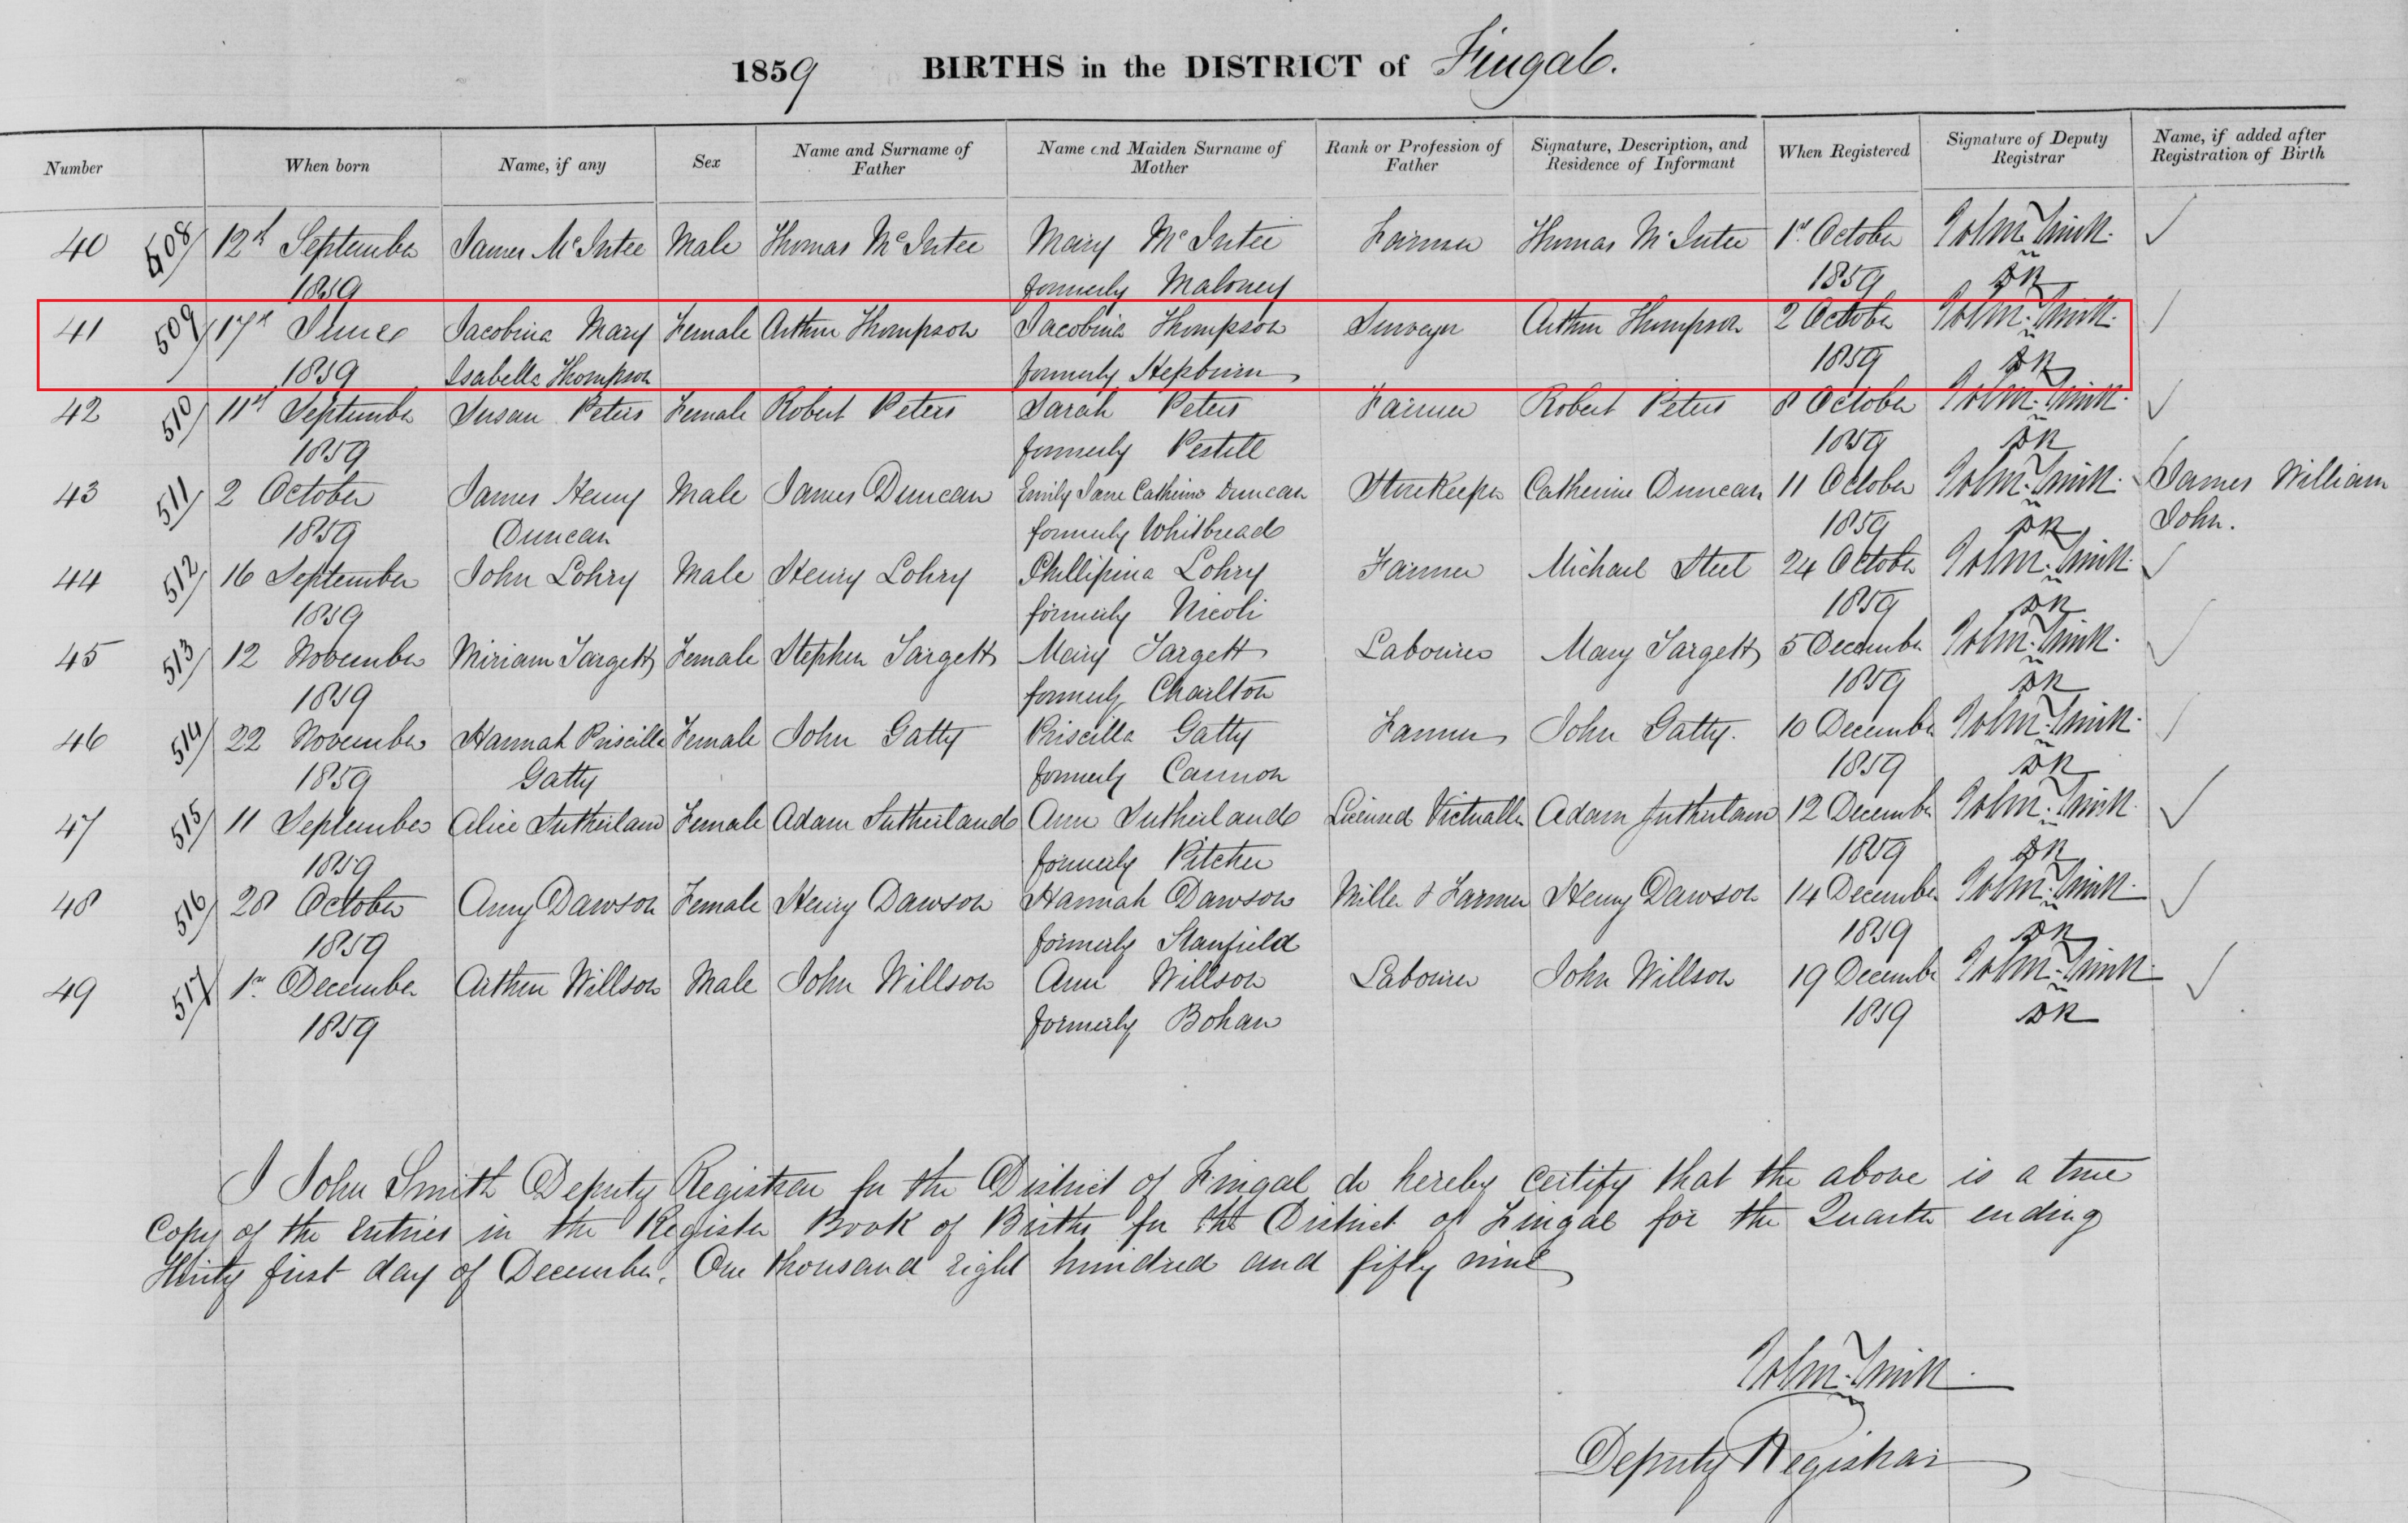 1859 BIRTHS in the DISTRICT of Fingal.
Number When born Name, if any Sex Name and Surname of Father Name and Maiden Surname of Mother Rank or Profession of Father Signature, Description, and Residence of Informant When Registered Signature of Deputy Registrar Name, if added after Registration of Birth
40 508 12th September James McIntee Male Thomas McIntee Mary McIntee Farmer Thomas McIntee 1st October John Smith
1859 formerly Maloney 1859 DR
41 509 17th June Jacobina Mary Female Arthur Thompson Jacobina Thompson Surveyor Arthur Thompson 2 October John Smith
1859 Isabella Thompson formerly Hepburn 1859 DR
42 510 11th September Susan Peters Female Robert Peters Sarah Peters Farmer Robert Peters 8 October John Smith
1859 formerly Pestell 1859 DR
43 511 2 October James Henry Male James Duncan Emily Jane Catherine Duncan Storekeeper Catherine Duncan 11 October John Smith James William
1859 Duncan formerly Whitbread 1859 DR John.
44 512 16 September John Lohry Male Henry Lohry Phillipina Lohry Farmer Michael Steel 24 October John Smith
1859 formerly Nicoli 1859 DR
45 513 12 November Miriam Targett Female Stephen Targett Mary Targett Labourer Mary Targett 5 December John Smith
1859 formerly Charlton 1859 DR
46 514 22 November Hannah Priscilla Female John Gatty Priscilla Gatty Farmer John Gatty. 10 December John Smith
1859 Gatty formerly Cannon 1859 DR
47 515 11 September Alice Sutherland Female Adam Sutherland Ann Sutherland Licensed Victualler Adam Sutherland 12 December John Smith
1859 formerly Pitcher 1859 DR
48 516 28 October Amy Dawson Female Henry Dawson Hannah Dawson Miller & Farmer Henry Dawson 14 December John Smith
1859 formerly Stanfield 1859 DR
49 517 1st December Arthur Willson Male John Willson Ann Willson Labourer John Willson 19 December John Smith
1859 formerly Bohan 1859 DR
I John Smith Deputy Registrar for the District of Fingal do hereby certify that the above is a true
Copy of the entries in the Register Book of Births for the District of Fingal for the Quarter ending
Thirty first day of December. One thousand eight hundred and fifty nine
John Smith
Deputy Registrar